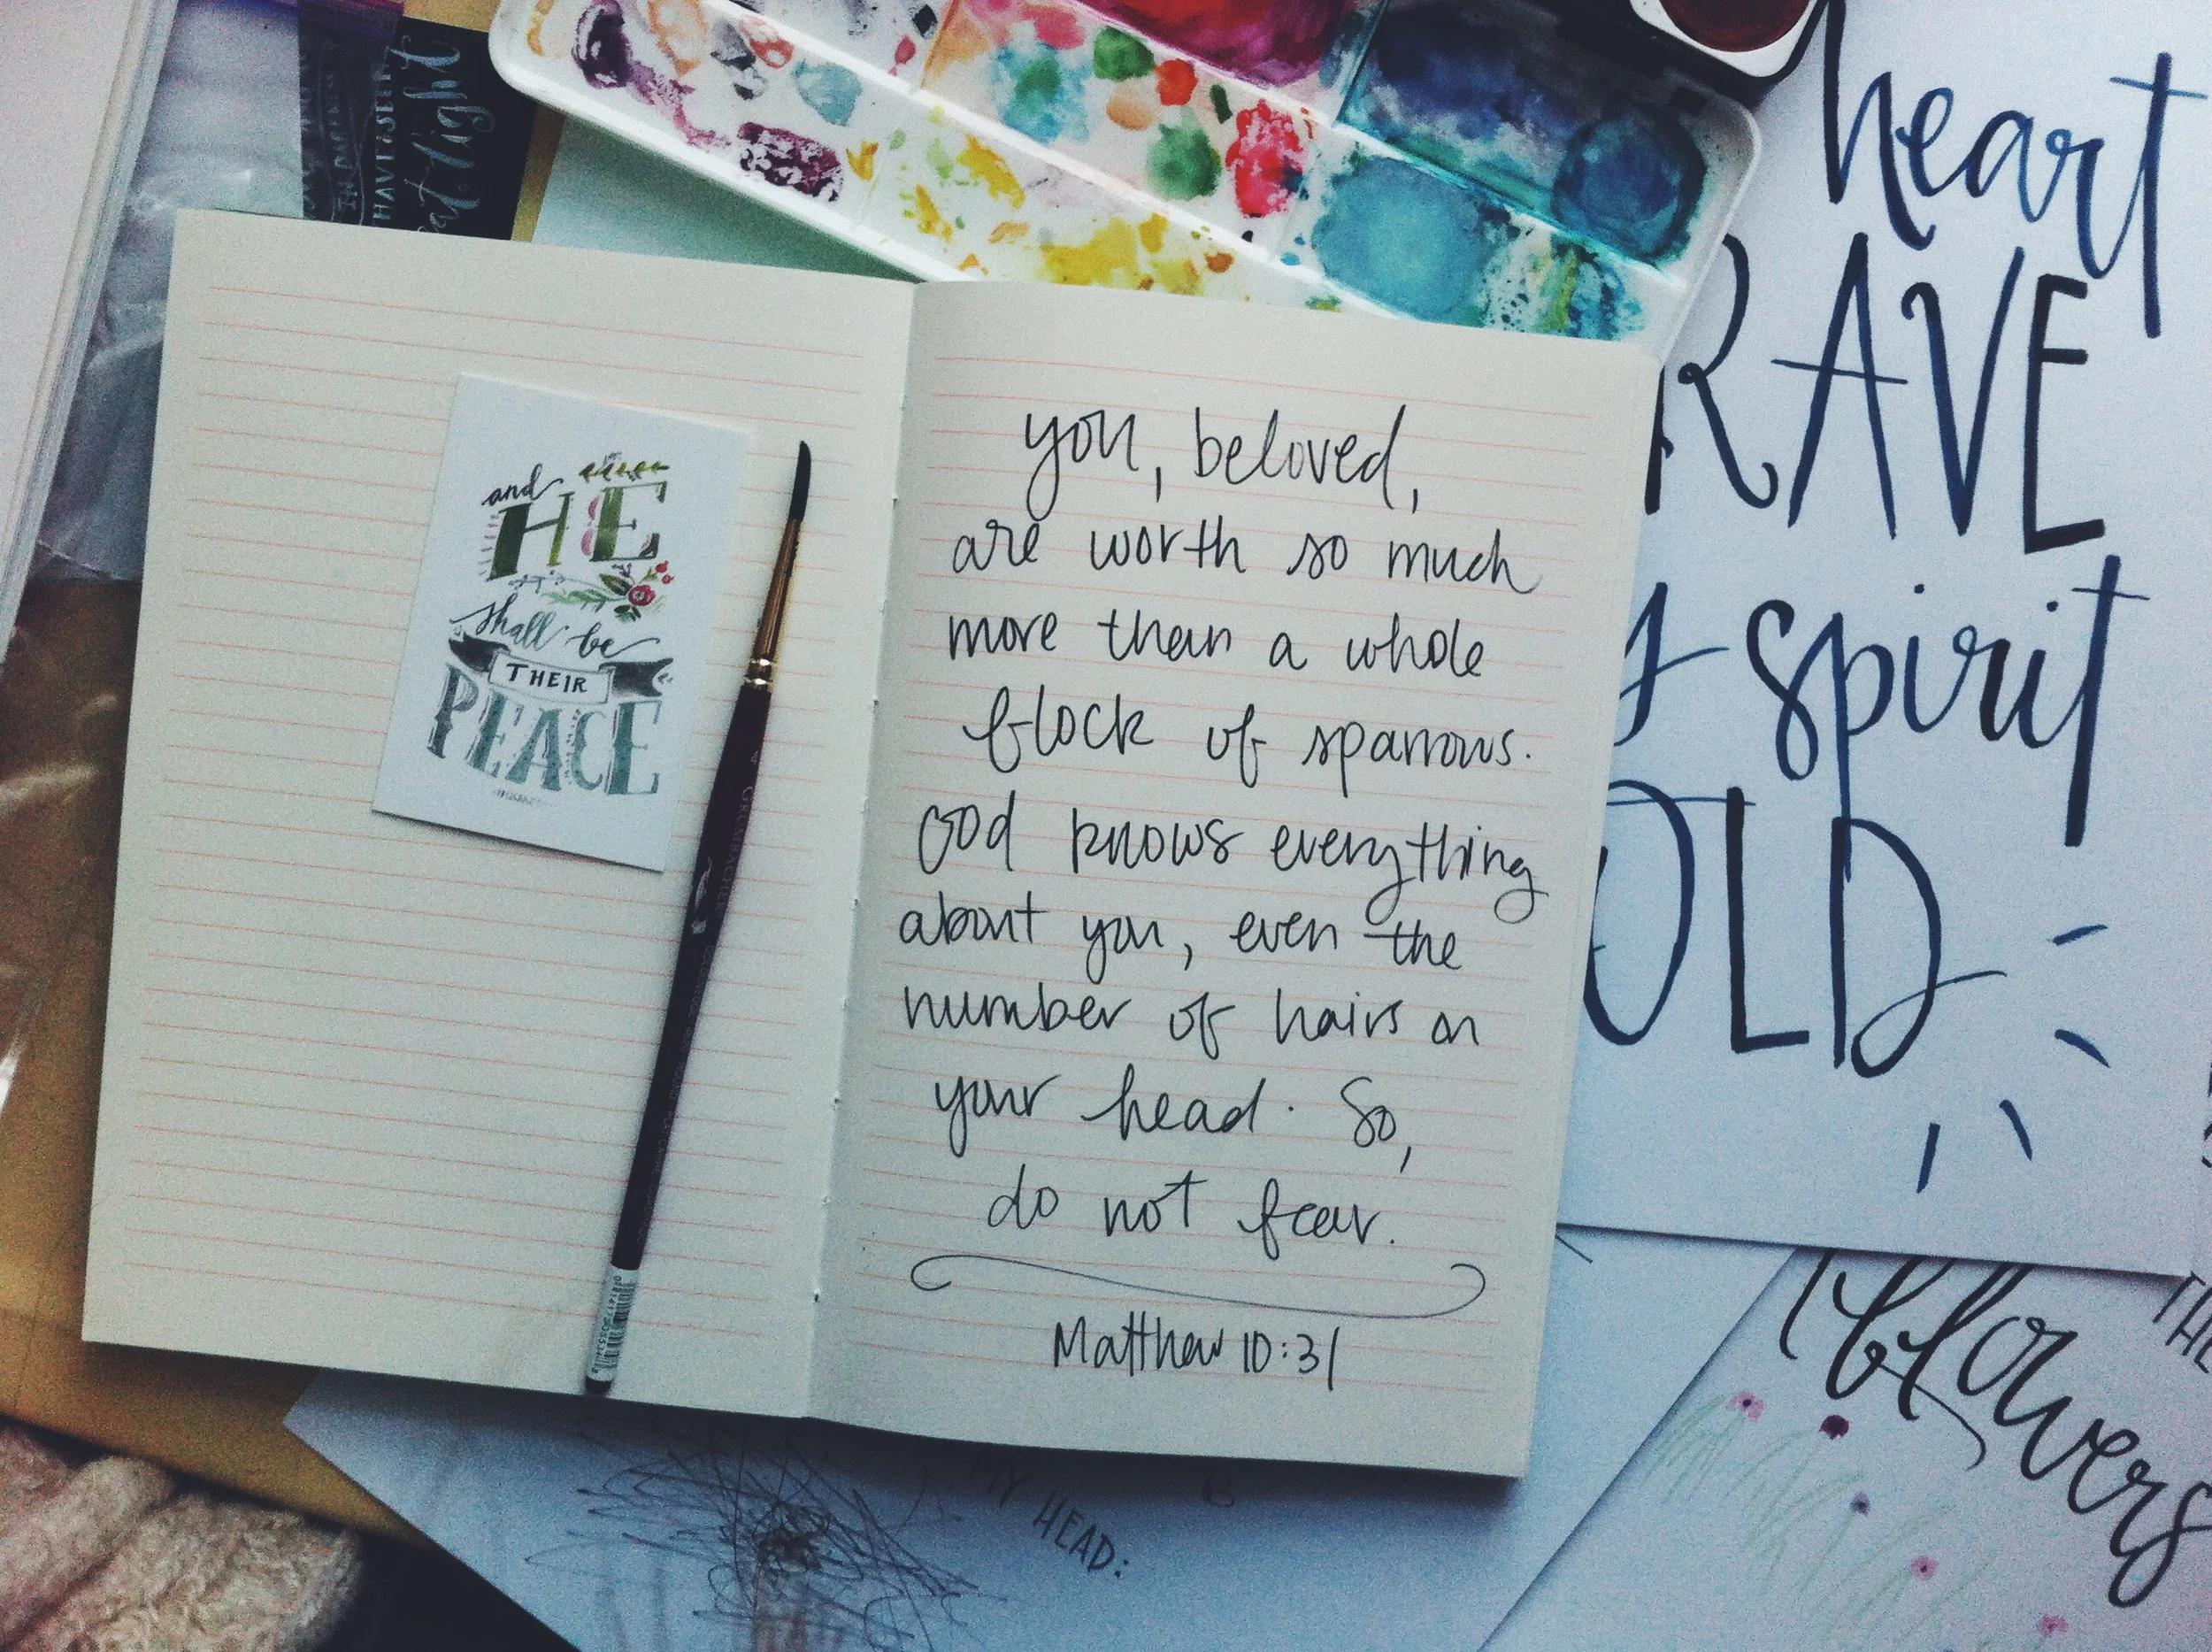 and
HE
shall be
THEIR
PEACE
you, beloved,
are worth so much
more than a whole
flock of sparrows.
God knows everything
about you, even the
number of hairs on
your head. So,
do not fear.
Matthew 10:31
heart
RAVE
spirit
OLD
flowers
THE
MY HEAD:
IN DARKNESS
HAVE SEEN
light